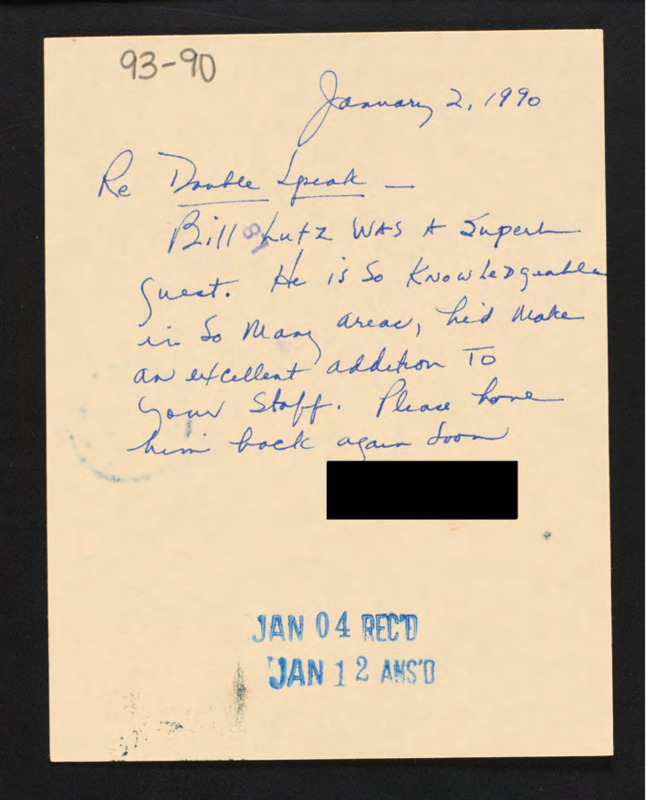 93-90
January 2, 1990
Re Double Speak —
Bill Lutz WAS A Superb
guest. He is so Knowledgeable
in so many areas, he'd make
an excellent addition To
your Staff. Please have
him back again soon
JAN 04 REC'D
JAN 12 ANS'D